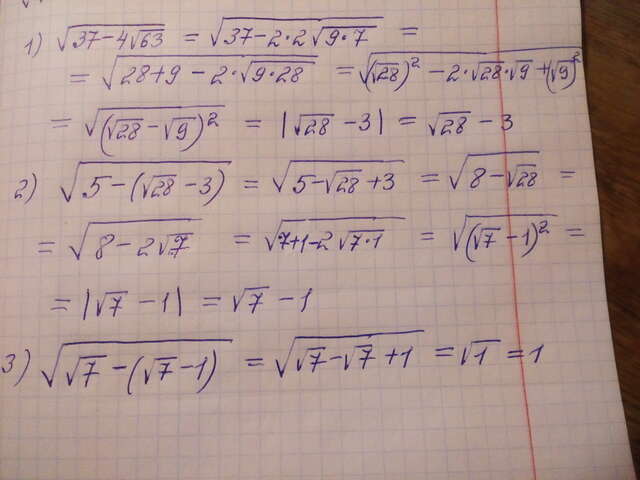 1) √(37-4√63) = √(37-2·2√(9·7)) =
= √(28+9-2·√(9·28)) = √((√28)²-2·√28·√9+(√9)²)
= √((√28-√9)²) = |√28-3| = √28-3
2) √(5-(√28-3)) = √(5-√28+3) = √(8-√28) =
= √(8-2√7) = √(7+1-2√(7·1)) = √((√7-1)²) =
= |√7-1| = √7-1
3) √(√7-(√7-1)) = √(√7-√7+1) = √1 = 1